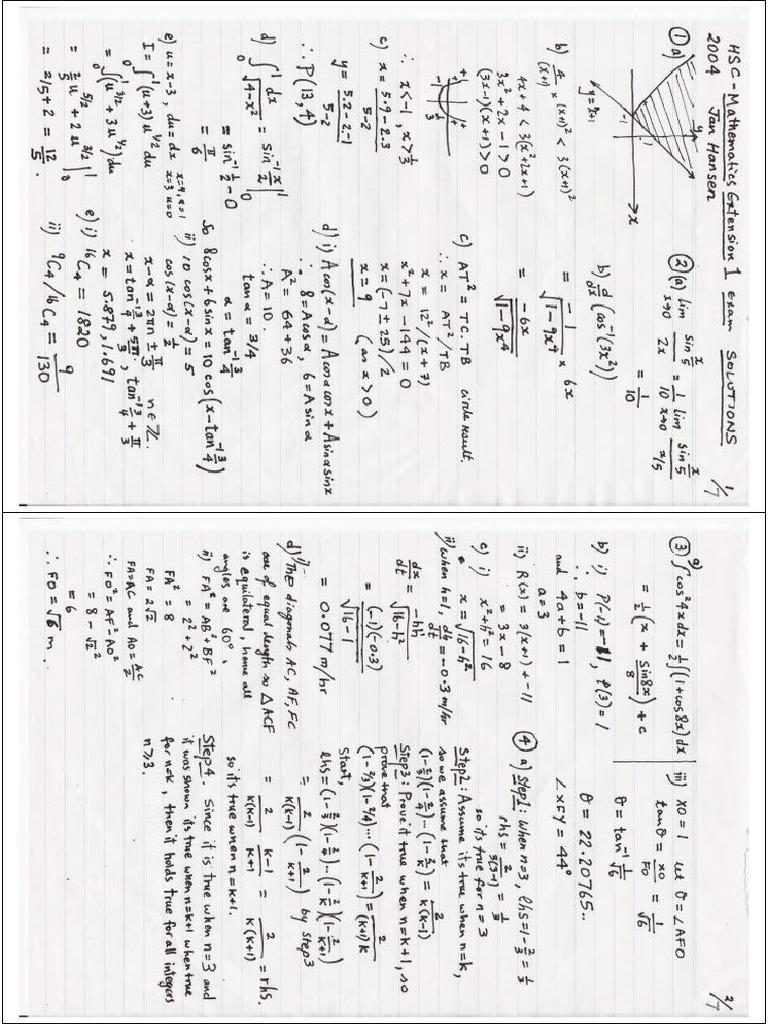 HSC - Mathematics Extension 1 exam SOLUTIONS 1/7
2004 Jan Hansen
① a)
y
x
-1
1
y=x+1
b) 4/(x+1) × (x+1)² < 3(x+1)²
4x+4 < 3(x²+2x+1)
3x²+2x-1 > 0
(3x-1)(x+1) > 0
+ + -1 1/3
∴ x<-1, x>1/3
c) x = (5.9-2.3)/(5-2)
y = (5.2-2.-1)/(5-2)
∴ P(13,4)
d) ∫₀¹ dx/√(4-x²) = sin⁻¹ x/2 |₀¹
= sin⁻¹ 1/2 - 0
= π/6
e) u=x-3, du=dx x=4, u=1 x=3 u=0
I = ∫₀¹ (u+3)u^(1/2) du
= ∫₀¹ (u^(3/2) + 3u^(1/2)) du
= 2/5 u^(5/2) + 2u^(3/2) |₀¹
= 2/5 + 2 = 12/5.
② (a) lim x→0 sin x/5 / 2x = 1/10 lim x→0 sin x/5 / x/5
= 1/10
b) d/dx (cos⁻¹(3x²))
= -1/√(1-9x⁴) × 6x
= -6x/√(1-9x⁴)
c) AT² = TC.TB circle result.
∴ x = AT²/TB
x = 12²/(x+7)
x²+7x-144 = 0
x = (-7±25)/2
x = 9 (as x>0)
d) i) A cos(x-α) = A cosα cosx + A sinα sinx
∴ 8 = A cosα, 6 = A sinα
A² = 64+36
∴ A=10.
tanα = 3/4
α = tan⁻¹ 3/4
So 8cosx + 6sinx = 10 cos(x-tan⁻¹ 3/4)
ii) 10 cos(x-α) = 5
cos(x-α) = 1/2
x-α = 2πn ± π/3 n∈Z.
x = tan⁻¹ 3/4 + 5π/3, tan⁻¹ 3/4 + π/3
x = 5.879, 1.691
e) i) ¹⁶C₄ = 1820
ii) ⁹C₄/¹⁶C₄ = 9/130
2/7
③ a) ∫cos²4x dx = 1/2 ∫(1+cos8x)dx
= 1/2 (x + sin8x/8) + c
b) i) P(-1) = -11, P(3) = 1
∴ b = -11
and 4a+b = 1
a=3
ii) R(x) = 3(x+1) + -11
= 3x - 8
c) i) x²+h² = 16
x = √(16-h²)
ii) when h=1, dh/dt = -0.3 m/hr
dx/dt = -hh'/√(16-h²)
= (-1)(-0.3)/√(16-1)
= 0.077 m/hr
d) i) The diagonals AC, AF, FC
are of equal length so △ACF
is equilateral, hence all
angles are 60°.
ii) FA² = AB² + BF²
= 2² + 2²
FA² = 8
FA = 2√2
FA=AC and AO = AC/2
∴ FO² = AF² - AO²
= 8 - √2²
= 6
∴ FO = √6 m.
iii) XO = 1 let θ = ∠AFO
tanθ = XO/FO = 1/√6
θ = tan⁻¹ 1/√6
θ = 22.20765..
∠XFY = 44°
④ a) Step1: when n=3, lhs = 1-2/3 = 1/3
rhs = 2/3(3-1) = 1/3
so its true for n=3
Step2: Assume its true when n=k,
so we assume that
(1-2/3)(1-2/4)...(1-2/k) = 2/k(k-1)
Step3: Prove it true when n=k+1, so
prove that
(1-2/3)(1-2/4)...(1-2/(k+1)) = 2/(k+1)k
Start,
lhs = (1-2/3)(1-2/4)..(1-2/k)(1-2/(k+1))
= 2/k(k-1) (1-2/(k+1)) by Step3
= 2/k(k-1) k-1/k+1 = 2/k(k+1) = rhs.
so its true when n=k+1.
Step4. Since it is true when n=3 and
it was shown its true when n=k+1 when true
for n=k, then it holds true for all integers
n≥3.